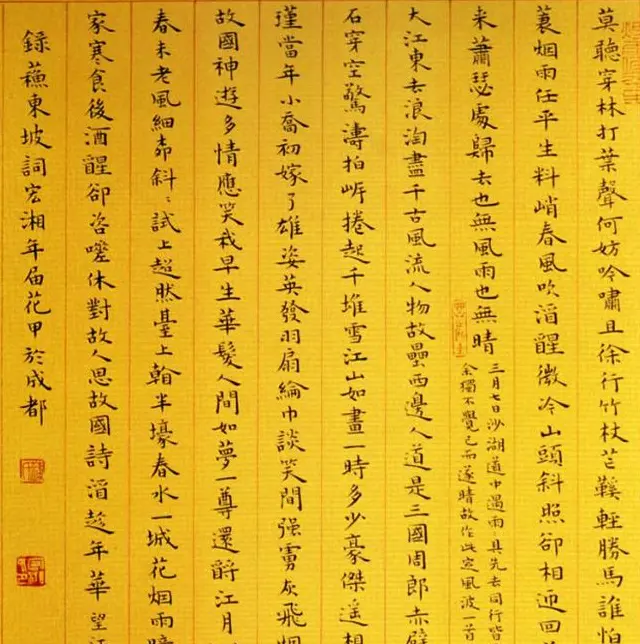 莫聽穿林打葉聲何妨吟嘯且徐行竹杖芒鞵輕勝馬誰怕
蓑烟雨任平生料峭春風吹酒醒微冷山頭斜照卻相迎回
来蕭瑟處歸去也無風雨也無晴
三月七日沙湖道中遇雨〻具先去同行皆
余獨不覺已而遂晴故作此定風波一首
大江東去浪淘盡千古風流人物故壘西邊人道是三國周郎赤壁
石穿空驚濤拍岍捲起千堆雪江山如畫一時多少豪傑遥想
瑾當年小喬初嫁了雄姿英發羽扇綸巾談笑間强虜灰飛烟
故國神遊多情應笑我早生華髮人間如夢一尊還酹江月
春未老風細柳斜〻試上超然臺上看半壕春水一城花烟雨暗
家寒食後酒醒卻咨嗟休對故人思故國詩酒趁年華 望江
録蘇東坡詞宏湘年届花甲於成都